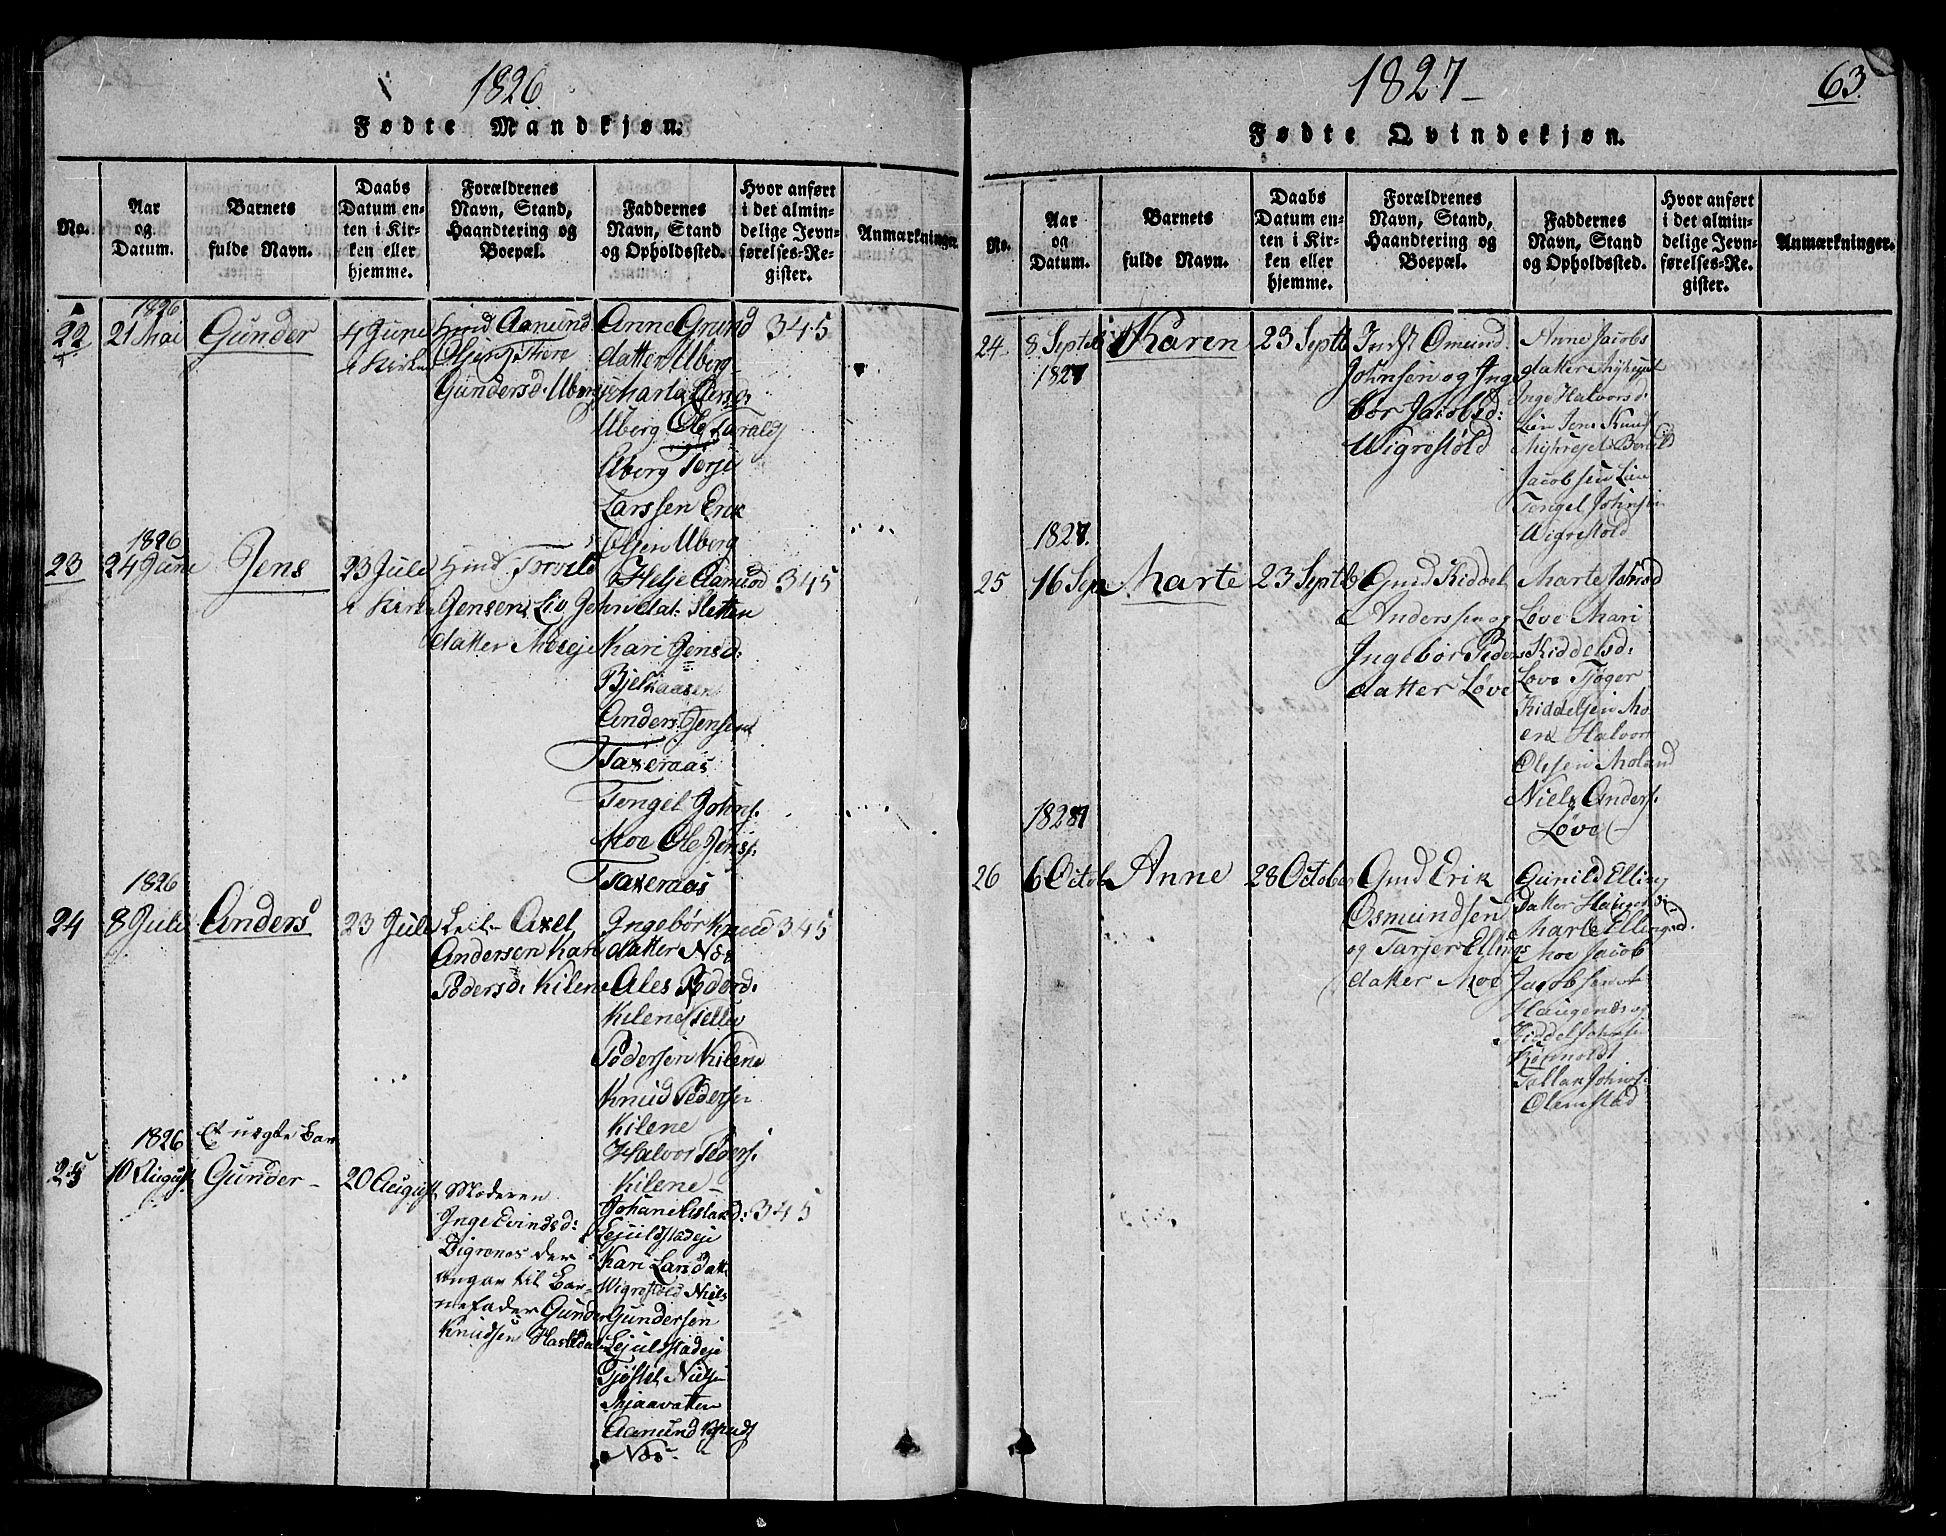 1826
Fødte Mandkjøn.
No.
Aar
og
Datum.
Barnets
fulde Navn.
Daabs
Datum en-
ten i Kir-
ken eller
hjemme.
Forældrenes
Navn, Stand,
Haandtering og
Boepæl.
Faddernes
Navn, Stand
og Opholdssted.
Hvor anført
i det almin-
delige Jevn-
førelses-Re-
gister.
Anmærkninger.
22
1826
21 Mai
Gunder
4 Juni
i Kirken
Aamund
Olsen Thore
Gundersd. Uberg
Anne Grund
datter Uberg
Marta Lars
Uberg Ole Tarald
Uberg Terje
Larssen Erik
Olsen Uberg
345
23
1826
24 Juni
Jens
23 Jule
i Kirke
Torvild
Jensen Liv John
datter Moseje
Helje Aamod
dat: Sletten
Kari Jensd:
Bjelkaasen
Anders Jensen
Taxeraas
Tengel Johns.
Moe Ole Jens.
Taxeraas
345
24
1826
8 Jule
Anders
23 Jule
Leil. Axel
Andersen Kari
Pedersd: Kilene
Ingebør Knud
datter Næs
Ales Pederd:
Kilene Tellev
Pedersen Kilene
Knud Pedersen
Kilene
Halvor Peders.
Kilene
345
25
1826
10 August
Et uægte Bar
Gunder
20 August
Moderen
Inge Evindsd:
Digrenes der
angav til Bar-
nefader Gunder
Knudsen
Johane
Lejulstadeje
Kari Larsdatt
Wigrestöld Niels
Gundersen
Lejulstadeje
Tjøstel Nielse
Skjaavatten
Aamund Knuds
Næs
345
1827
63.
Fødte Qvindekjøn.
No.
Aar
og
Datum.
Barnets
fulde Navn.
Daabs
Datum en-
ten i Kir-
ken eller
hjemme.
Forældrenes
Navn, Stand,
Haandtering og
Boepæl.
Faddernes
Navn, Stand
og Opholdssted.
Hvor anført
i det almin-
delige Jevn-
førelses-Re-
gister.
Anmærkninger.
24
8 Septeb
1827
Karen
23 Septb
Indst Omund
Johnsen og Inge
bor Jacobsd:
Wigrestöld
Anne Jacobs
datter
Inge Halvorsd
Lien Jens Knuds
Jacobsen Lien
Tengel Johnsen
Wigrestold
25
1827.
16 Sep
Marte
23 Septb
Gmd Kiddel
Anderssen og
Ingebor Peders
datter Løve
Marte Johnsd
Løve Mari
Kiddelsd:
Løve Tjøger
Kiddelsen Mo
en Halvor
Olssen Moland
Niels Anders.
Løve
26
1827
6 Octob
Anne
28 October
Gmd Erik
Osmundsen
og Tarjer Ellings
datter Moe
Gunild Elling
datter Haugenæs
Marte Ellingsd.
Moe Jacob
Jacobsen
Haugenæs og
Kiddel Johnsen
Rønnoldt
Tallak Johns.
Olemstad